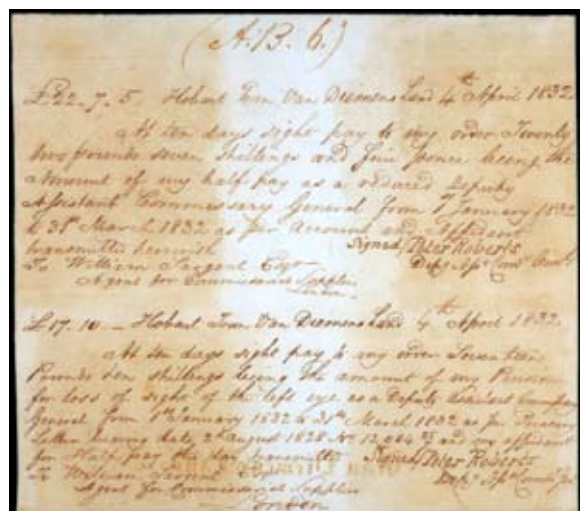 (A. B. 6.)
£22.7.5 Hobart Town Van Diemens Land 4th April 1832
At ten days sight pay to my order Twenty
two pounds seven shillings and five pence being the
Amount of my half pay as a reduced Deputy
Assistant Commissary General from 1 January 1832
to 31st March 1832 as per Account and Affidavit
transmitted herewith Signed/Peter Roberts
To William Sargent Esqr Dep. Ast. Comy. Genl.
Agent for Commissariat Supplies
London
£17.10 — Hobart Town Van Diemens Land 4th April 1832
At ten days sight pay to my order Seventeen
Pounds ten shillings being the amount of my Pension
for loss of sight of the left eye as a Deputy Assistant Commissary
General from 1st January 1832 to 31st March 1832 as per Treasury
Letter bearing date 2d August 1828 No 12,004 and my affidavit
for Half pay this day transmitted Signed/Peter Roberts
To William Sargent
Agent for Commissariat Supplies
London